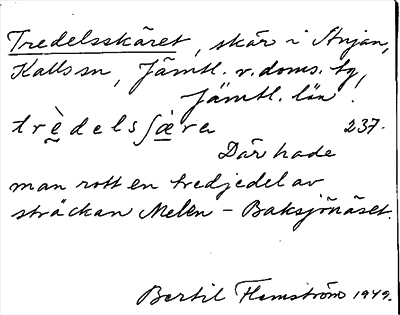 Tredelsskäret, skär i Anjan,
Kalls sn, Jämtl. v. doms. tg,
Jämtl. län.
trè̱delsʃæ̱̀ra 237.
Där hade
man rott en tredjedel av
sträckan Melen – Baksjönäset.
Bertil Flemström 1949.